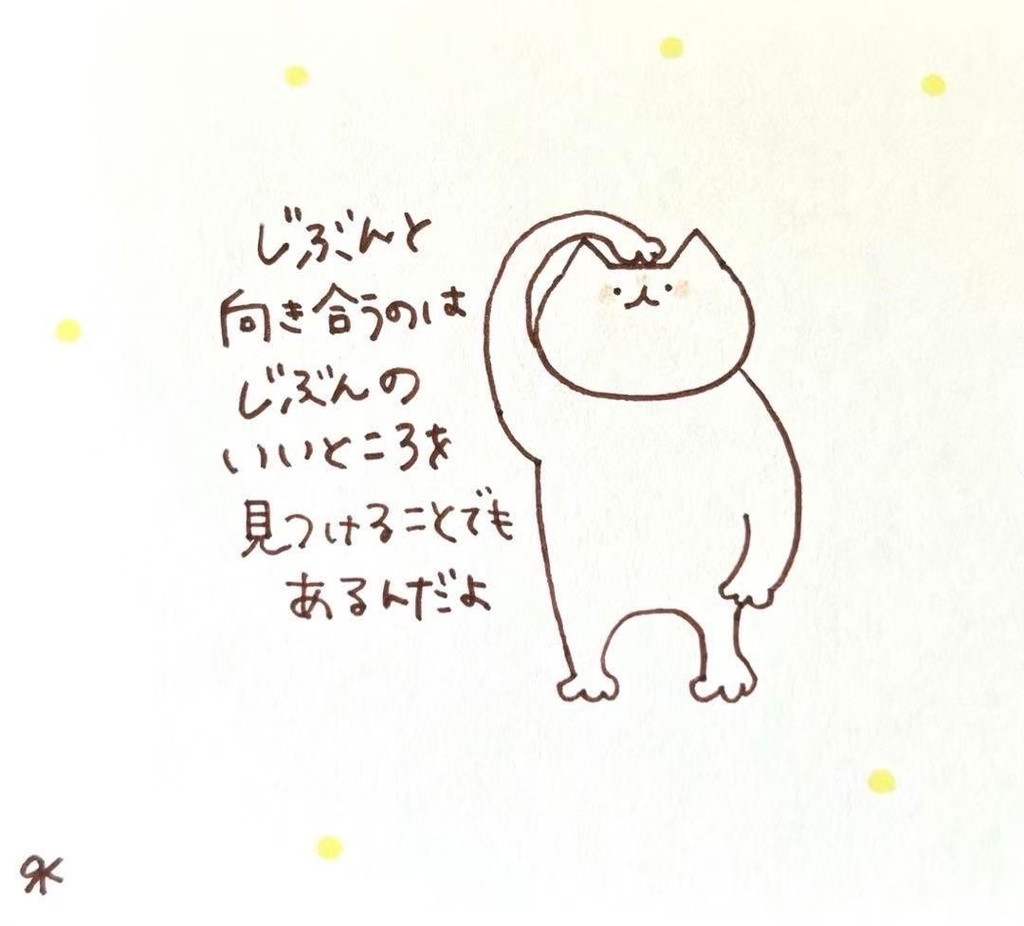 じぶんと
向き合うのは
じぶんの
いいところを
見つけることでも
あるんだよ